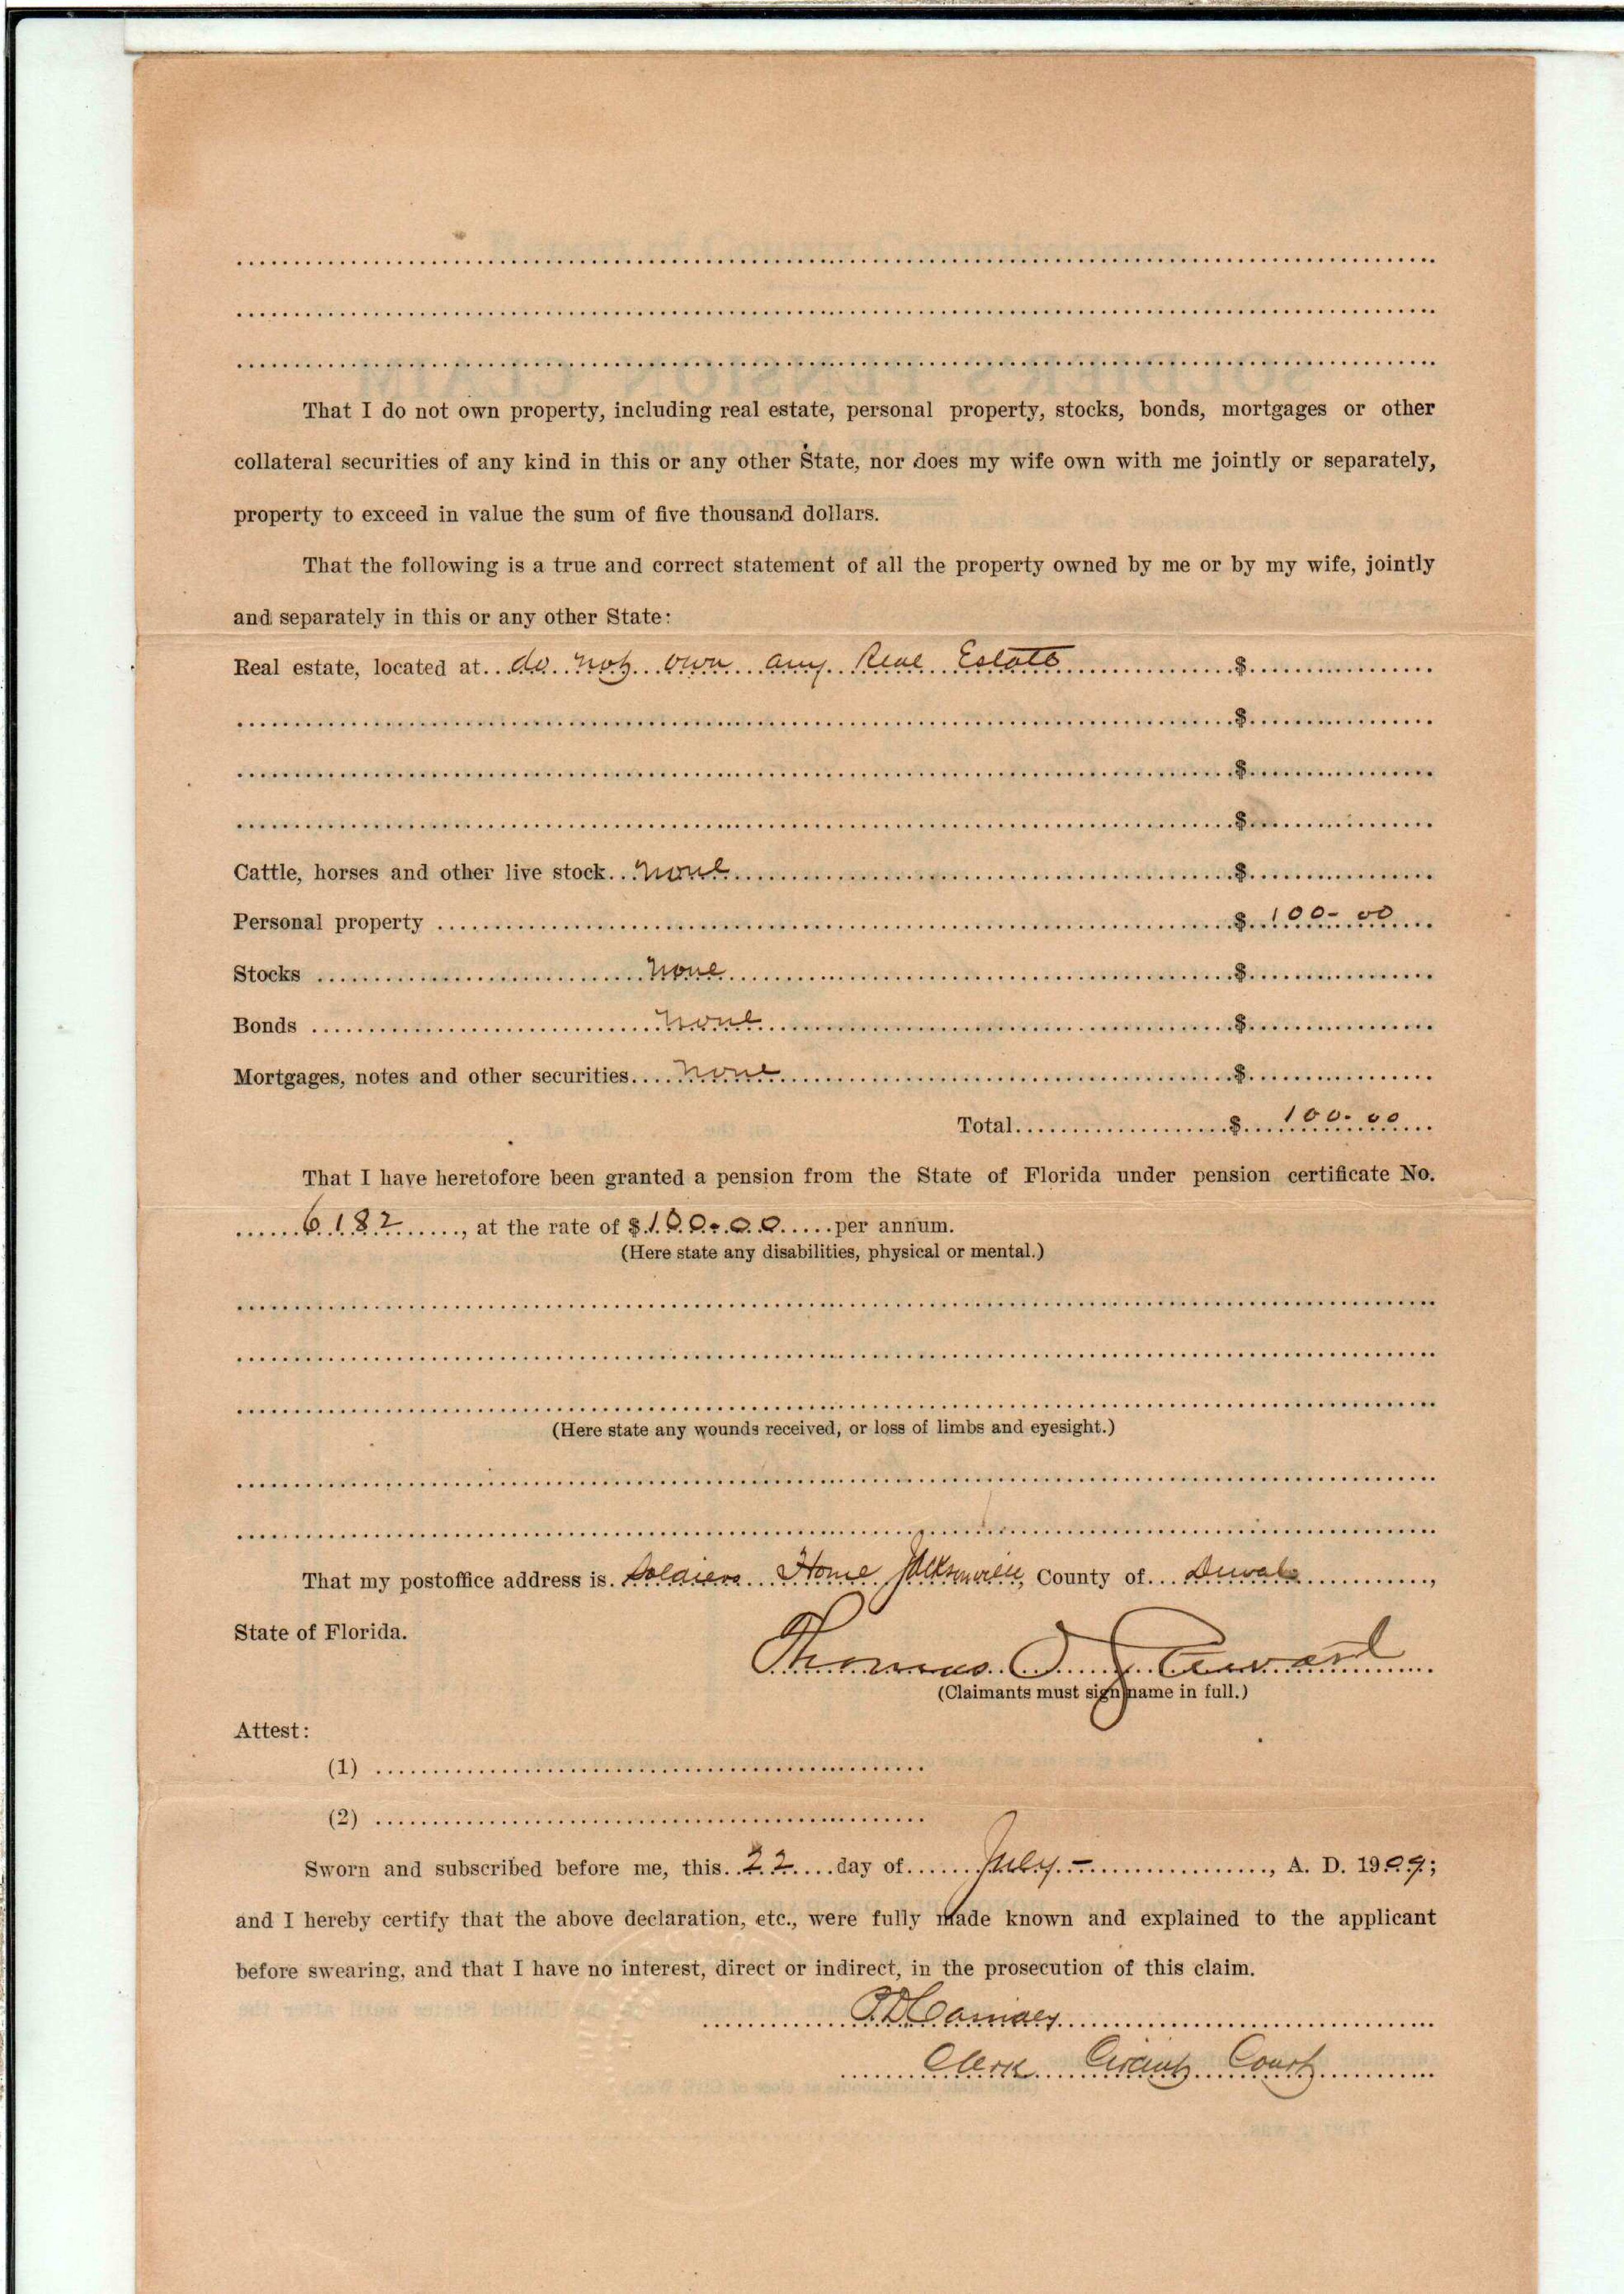 That I do not own property, including real estate, personal property, stocks, bonds, mortgages or other
collateral securities of any kind in this or any other State, nor does my wife own with me jointly or separately,
property to exceed in value the sum of five thousand dollars.
That the following is a true and correct statement of all the property owned by me or by my wife, jointly
and separately in this or any other State:
Real estate, located at do not own any Real Estate $
$
$
$
Cattle, horses and other live stock none $
Personal property $ 100-00
Stocks none $
Bonds none $
Mortgages, notes and other securities none $
Total $ 100-00
That I have heretofore been granted a pension from the State of Florida under pension certificate No.
6182, at the rate of $100.00 per annum.
(Here state any disabilities, physical or mental.)
(Here state any wounds received, or loss of limbs and eyesight.)
That my postoffice address is Soldiers Home Jacksonville, County of Duval,
State of Florida.
Thomas
(Claimants must sign name in full.)
Attest:
(1)
(2)
Sworn and subscribed before me, this 22 day of July, A. D. 1909;
and I hereby certify that the above declaration, etc., were fully made known and explained to the applicant
before swearing, and that I have no interest, direct or indirect, in the prosecution of this claim.
Clerk Circuit Court